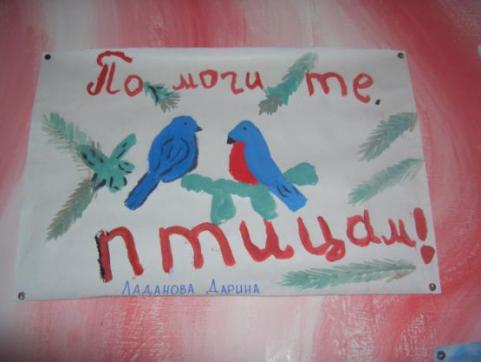 Помогите
птицам!
Ладанова Дарина